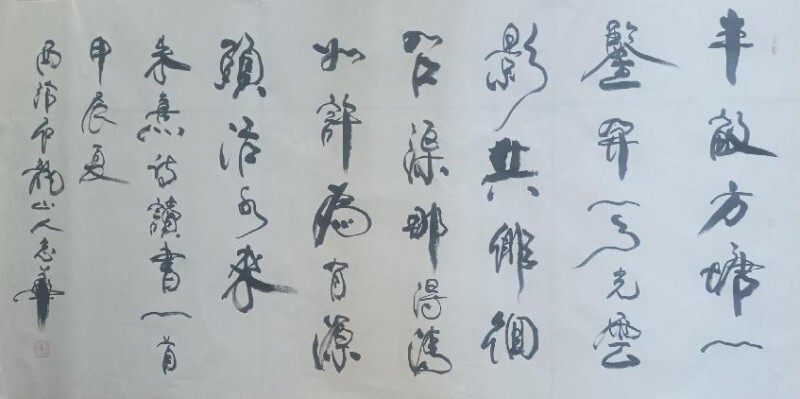 半畝方塘一
鑒開天光雲
影共徘徊
問渠那得清
如許為有源
頭活水來
朱熹诗讀書一首
甲辰夏
龍山人志華